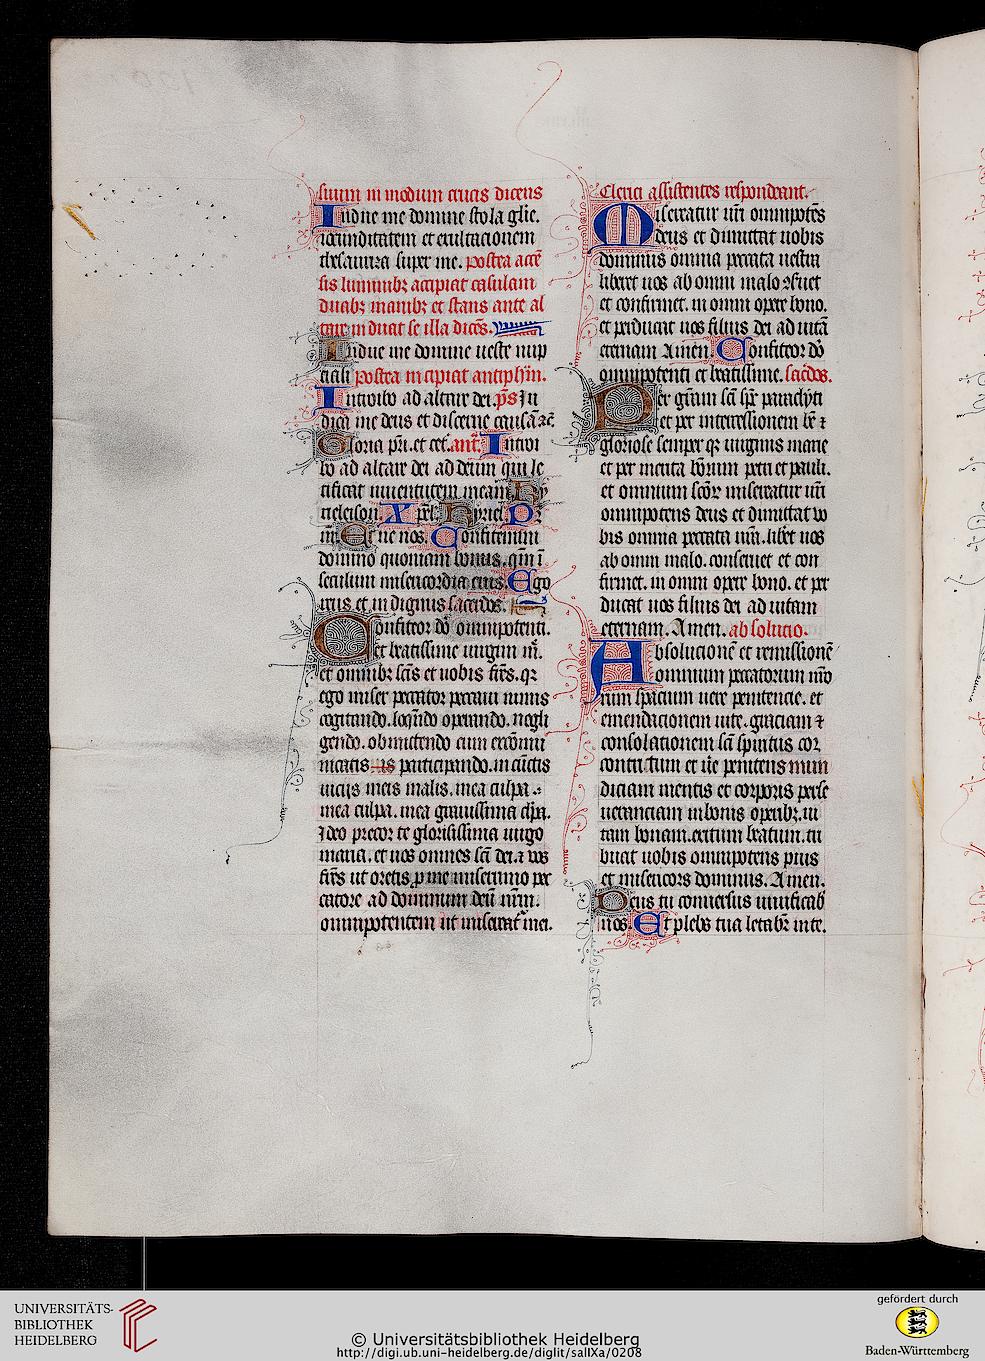 suum in modum crucis dicens
Indue me domine stola glie.
iocunditatem et exultacionem
thesauriza super me. postea accē
sis luminibꝫ accipiat casulam
duabꝫ manibꝫ et stans ante al
tare induat se illa dicēs.
Indue me domine ueste nup
ciali postea incipiat antiphm̄.
Introibo ad altare dei. p̄s Ju
dica me deus et discerne causā ꝛc̄
Gloria pr̄i. et cet̄. ant̄. Introi
bo ad altare dei ad deum qui le
tificat iuuentutem meam Ky
rieleison. Xp̄el. Kyriel. Pr̄
nr̄. Et ne nos. Confitemini
domino quoniam bonus. qm̄ ī
seculum misericordia eius. Ego
reus et indignus sacerdos.
Confiteor do omnipotenti.
et beatissime uirgini m̄.
et omnibꝫ scīs et uobis frēs. qꝛ
ego miser peccator peccaui nimis
cogitando. loqn̄do operando. negli
gendo. obmittendo cum excōmu
nicatis participando. in cūctis
uicijs meis malis. mea culpa.
mea culpa. mea grauissima clp̄a.
Ideo precor te gloriosissima uirgo
maria. et uos omnes scī dei. ⁊ vos
frēs ut oretis ꝓ me miserrimo pec
catore ad dominum deū nr̄m.
omnipotentem ut misereat᷑ mei.
Clerici assistentes respondeant.
Misereatur ur̄i omnipotēs
deus et dimittat uobis
dominus omnia peccata uestra
liberet uos ab omni malo ꝯseruet
et confirmet. in omni opere bono.
et perducat uos filius dei ad uitā
eternam Amen. Confiteor do
omnipotenti et beatissime. sac̄dos.
Per gr̄am scī sp̄c paracliti
et per intercessionem be ⁊
gloriose semper qꝫ uirginis marie
et per merita bōrum petri et pauli.
et omnium scōꝝ misereatur ur̄i
omnipotens deus et dimittat vo
bis omnia peccata ur̄a. libēt uos
ab omni malo. conseruet et con
firmet. in omni opere bono. et per
ducat uos filius dei ad uitam
eternam. Amen. absolucio.
Absolucionē et remissionē
omnium peccatorum nrō
rum spacium uere penitencie. et
emendacionem uite. graciam ⁊
consolationem scī spiritus cor
contritum et ur̄e penitens mun
diciam mentis et corporis perse
ueranciam in bonis operibꝫ. ui
tam bonam. exitum beatum. tri
buat uobis omnipotens pius
et misericors dominus. Amen.
Deus tu conuersus uiuificab
nos. Et plebs tua letabr̄ in te.
UNIVERSITÄTS-
BIBLIOTHEK
HEIDELBERG
© Universitätsbibliothek Heidelberg
http://digi.ub.uni-heidelberg.de/diglit/salIXa/0208
gefördert durch
Baden-Württemberg